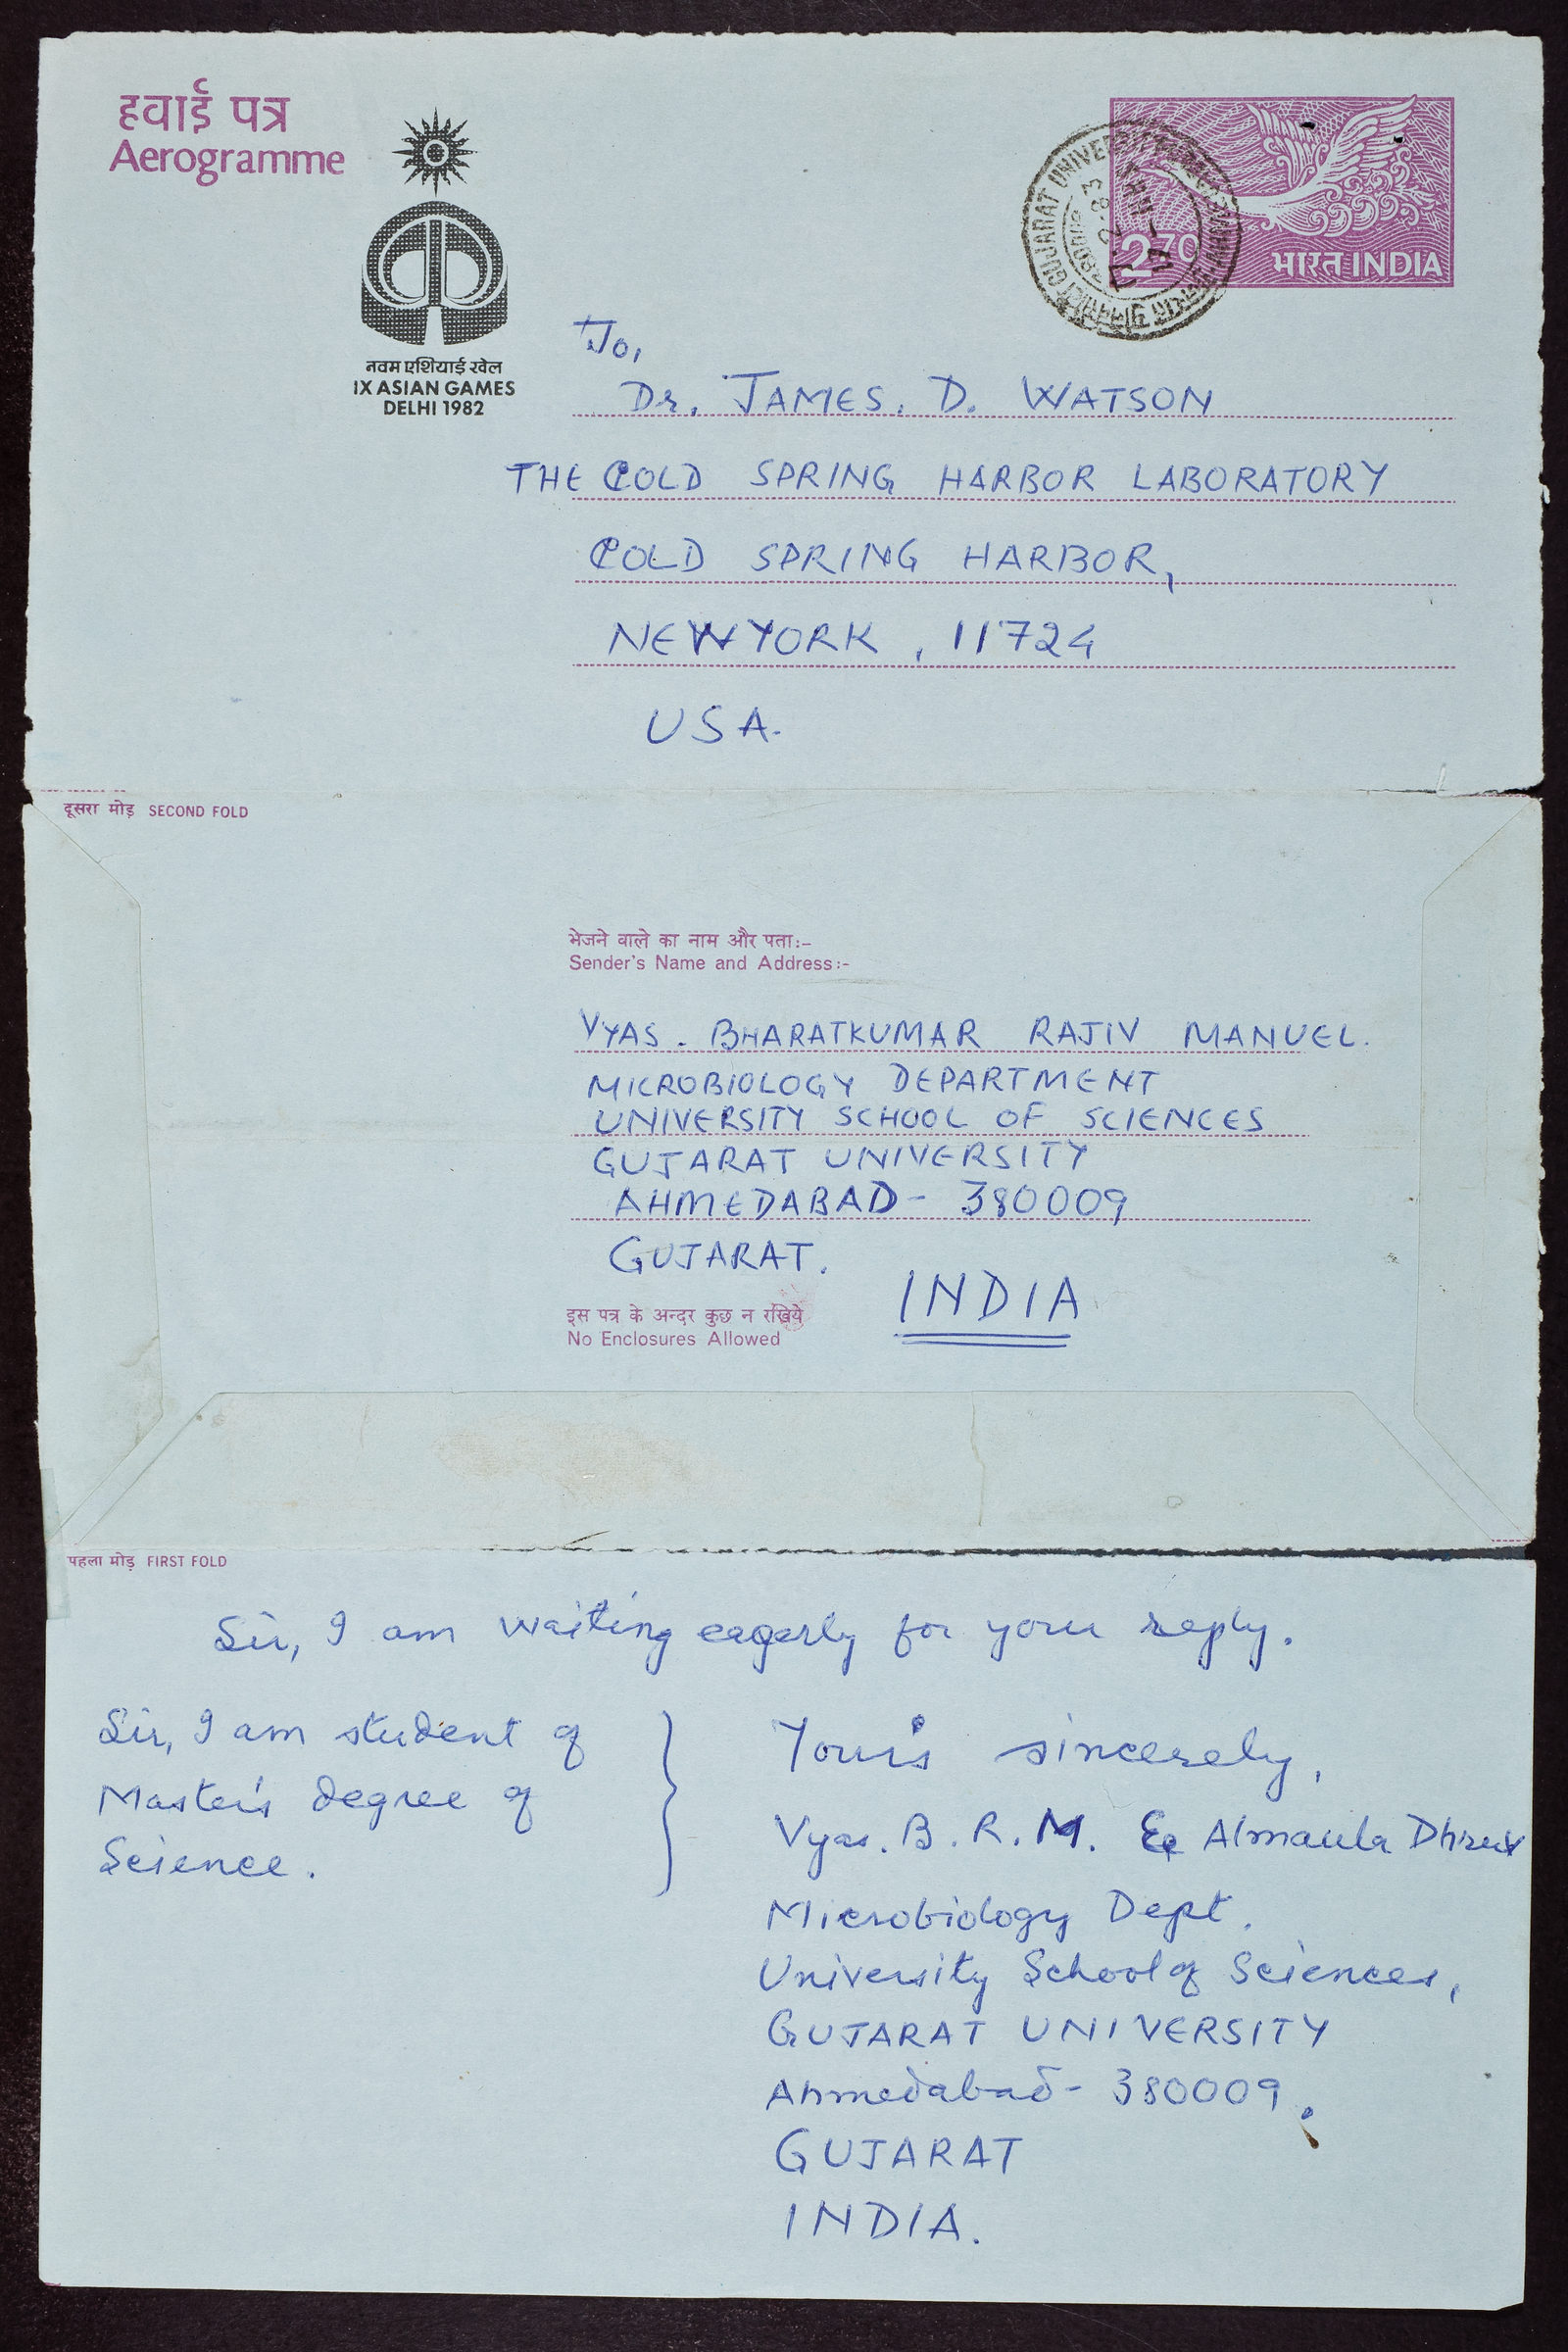 हवाई पत्र
Aerogramme
नवम एशियाई खेल
IX ASIAN GAMES
DELHI 1982
2.70
भारत INDIA
GUJARAT UNIVERSITY
To,
Dr. JAMES. D. WATSON
THE COLD SPRING HARBOR LABORATORY
COLD SPRING HARBOR,
NEWYORK, 11724
USA.
दूसरा मोड़ SECOND FOLD
भेजने वाले का नाम और पता:-
Sender's Name and Address:-
VYAS. BHARATKUMAR RAJIV MANUEL.
MICROBIOLOGY DEPARTMENT
UNIVERSITY SCHOOL OF SCIENCES
GUJARAT UNIVERSITY
AHMEDABAD- 380009
GUJARAT.
INDIA
इस पत्र के अन्दर कुछ न रखिये
No Enclosures Allowed
पहला मोड़ FIRST FOLD
Sir, I am waiting eagerly for your reply.
Sir, I am student of
Master's degree of
Science.
Your's sincerely,
Vyas. B. R. M. & Almaula
Microbiology Dept.
University School of Sciences,
GUJARAT UNIVERSITY
Ahmedabad- 380009.
GUJARAT
INDIA.